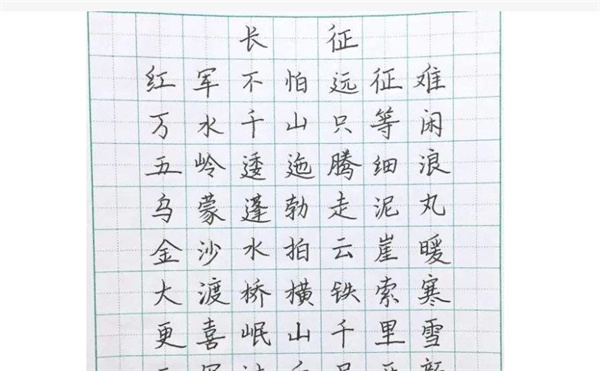 长征
红军不怕远征难
万水千山只等闲
五岭逶迤腾细浪
乌蒙蓬勃走泥丸
金沙水拍云崖暖
大渡桥横铁索寒
更喜岷山千里雪